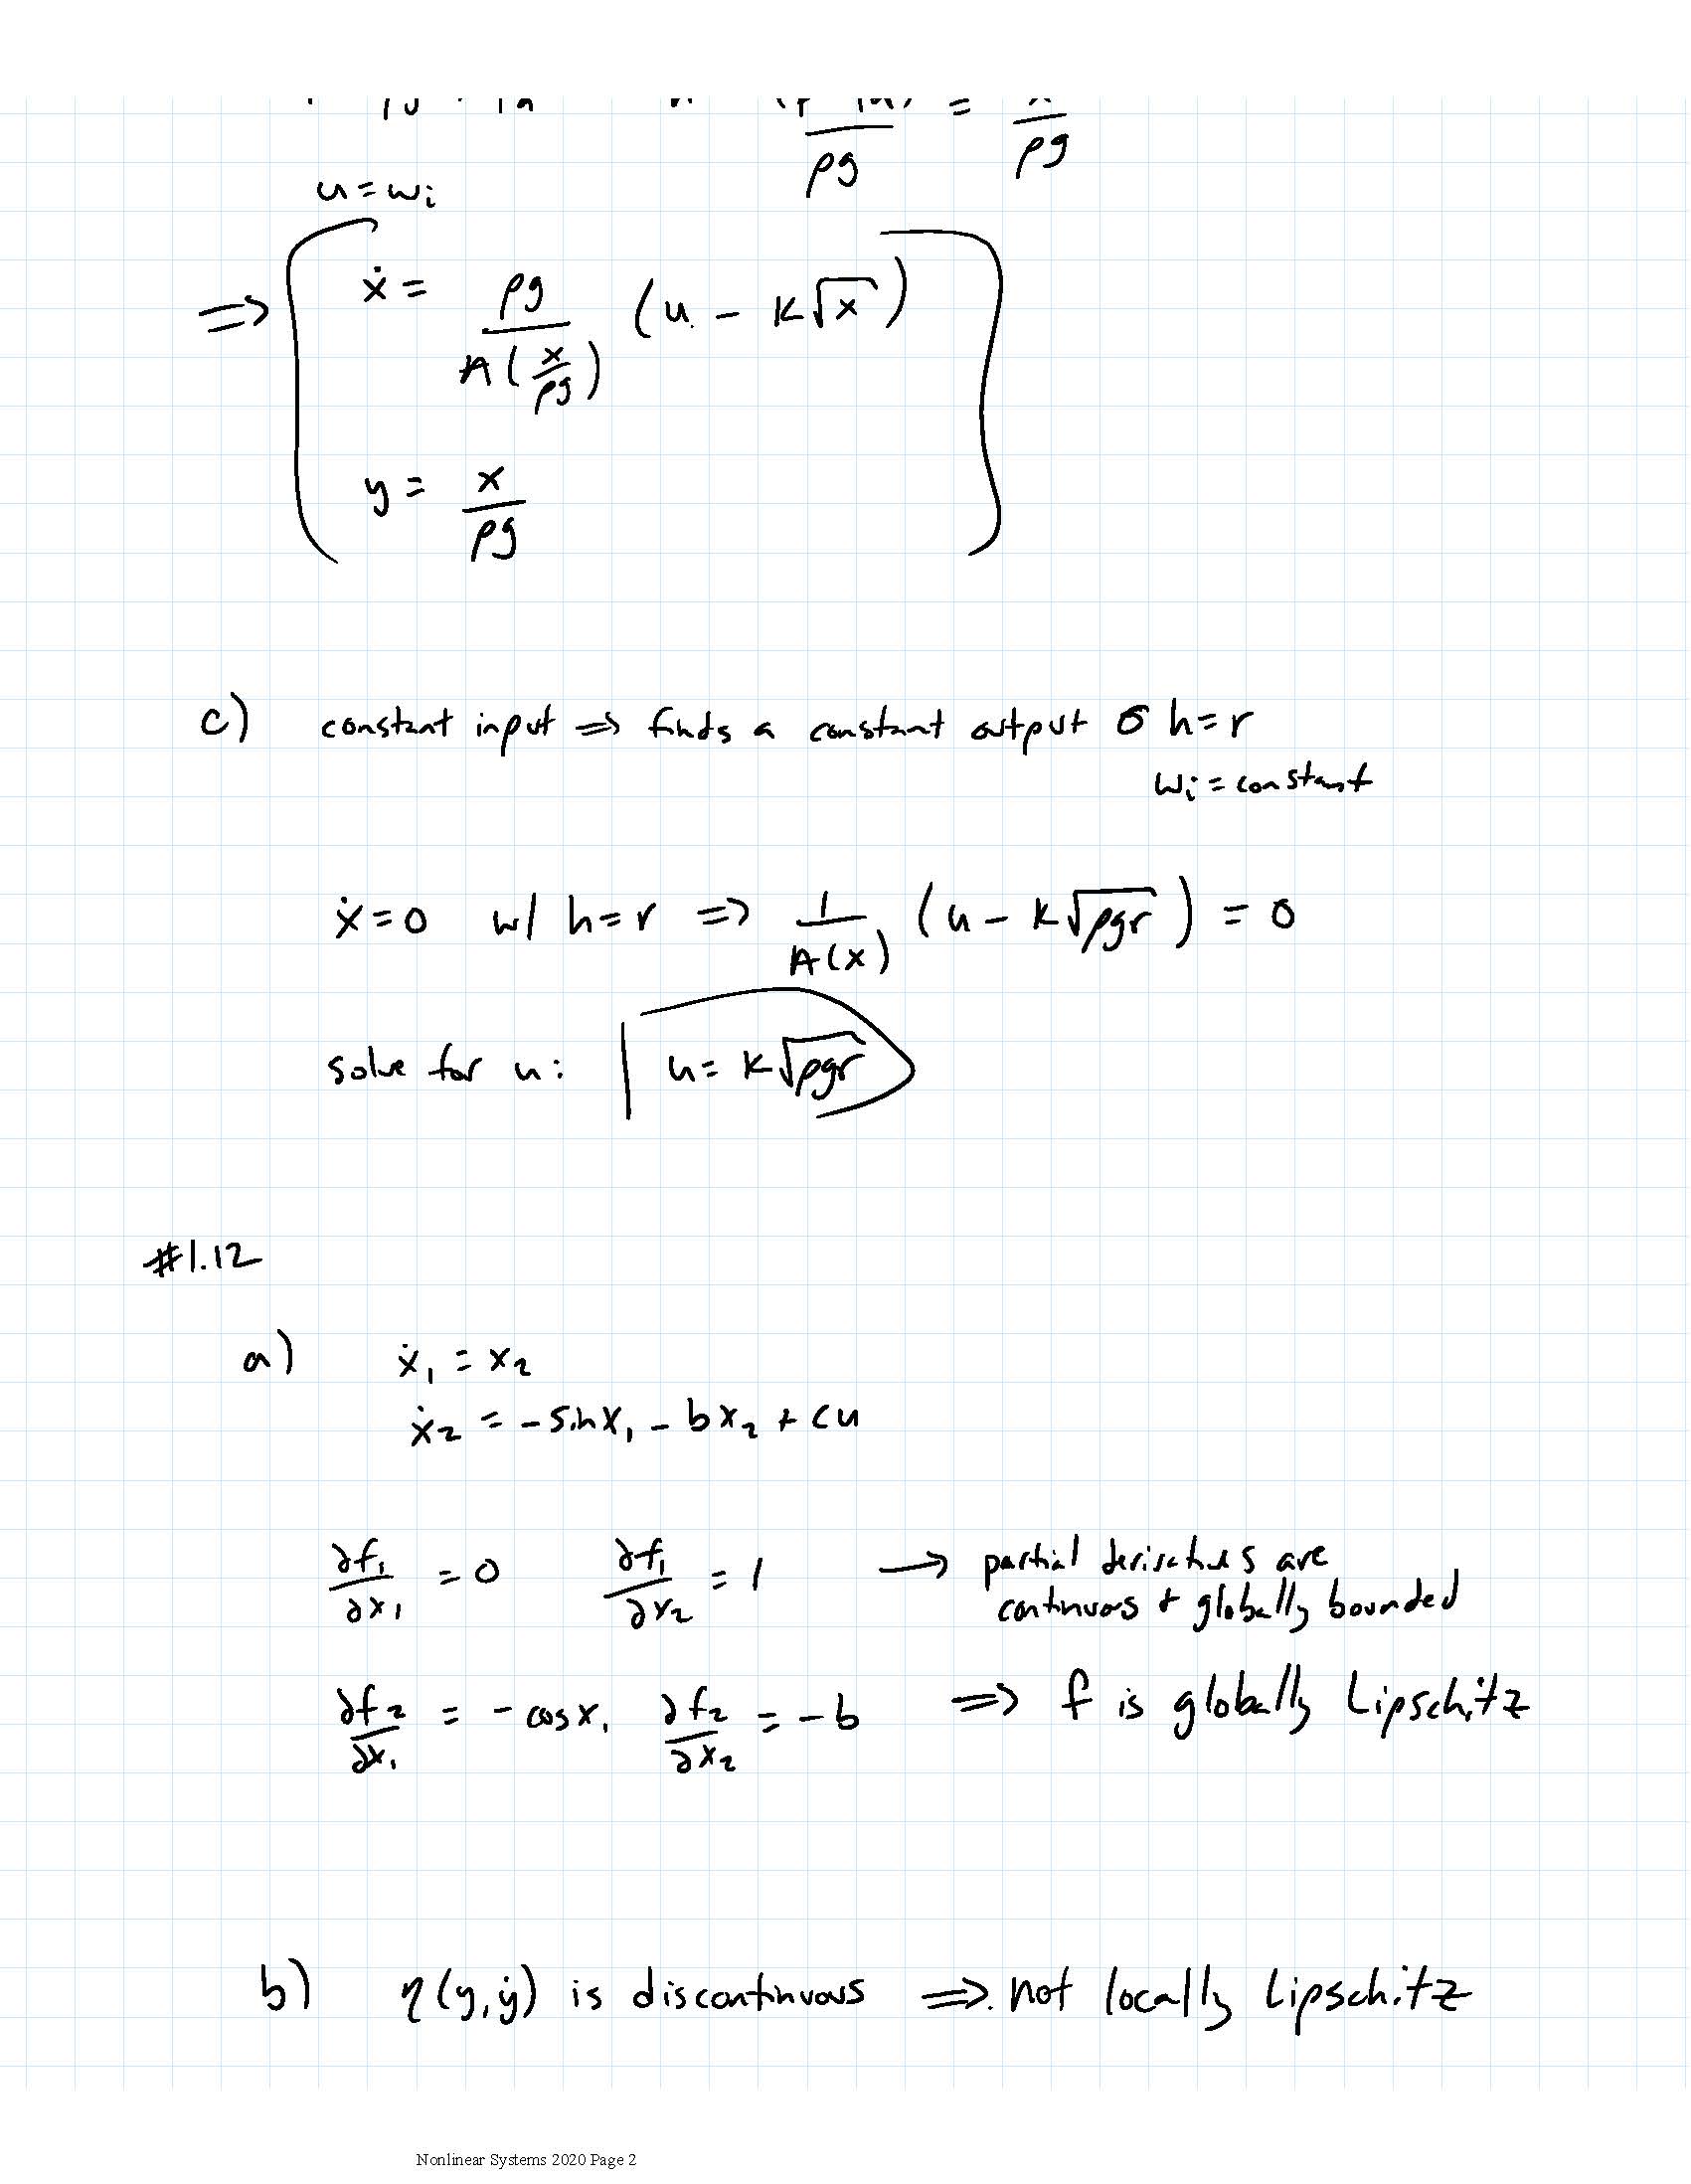 ρg = ρg
u = wi
⇒ ẋ = ρg / A(x/ρg) (u - k√x)
y = x/ρg
c) constant input ⇒ finds a constant output σ h=r
wi = constant
ẋ=0 w/ h=r ⇒ 1/A(x) (u - k√ρgr) = 0
solve for u: u = k√ρgr
#1.12
a) ẋ₁ = x₂
ẋ₂ = -sinx₁ - bx₂ + cu
∂f₁/∂x₁ = 0 ∂f₁/∂x₂ = 1 → partial derivatives are
continuous + globally bounded
∂f₂/∂x₁ = -cosx₁ ∂f₂/∂x₂ = -b ⇒ f is globally Lipschitz
b) η(y,ẏ) is discontinuous ⇒ not locally Lipschitz
Nonlinear Systems 2020 Page 2